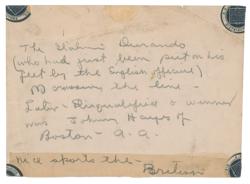 The Italian Dorando
(who had just been put on his
feet by the English officers)
crossing the line -
Later - Disqualified & winner
was Johnny Hayes of
Boston - A.A.
nice sports the -
British